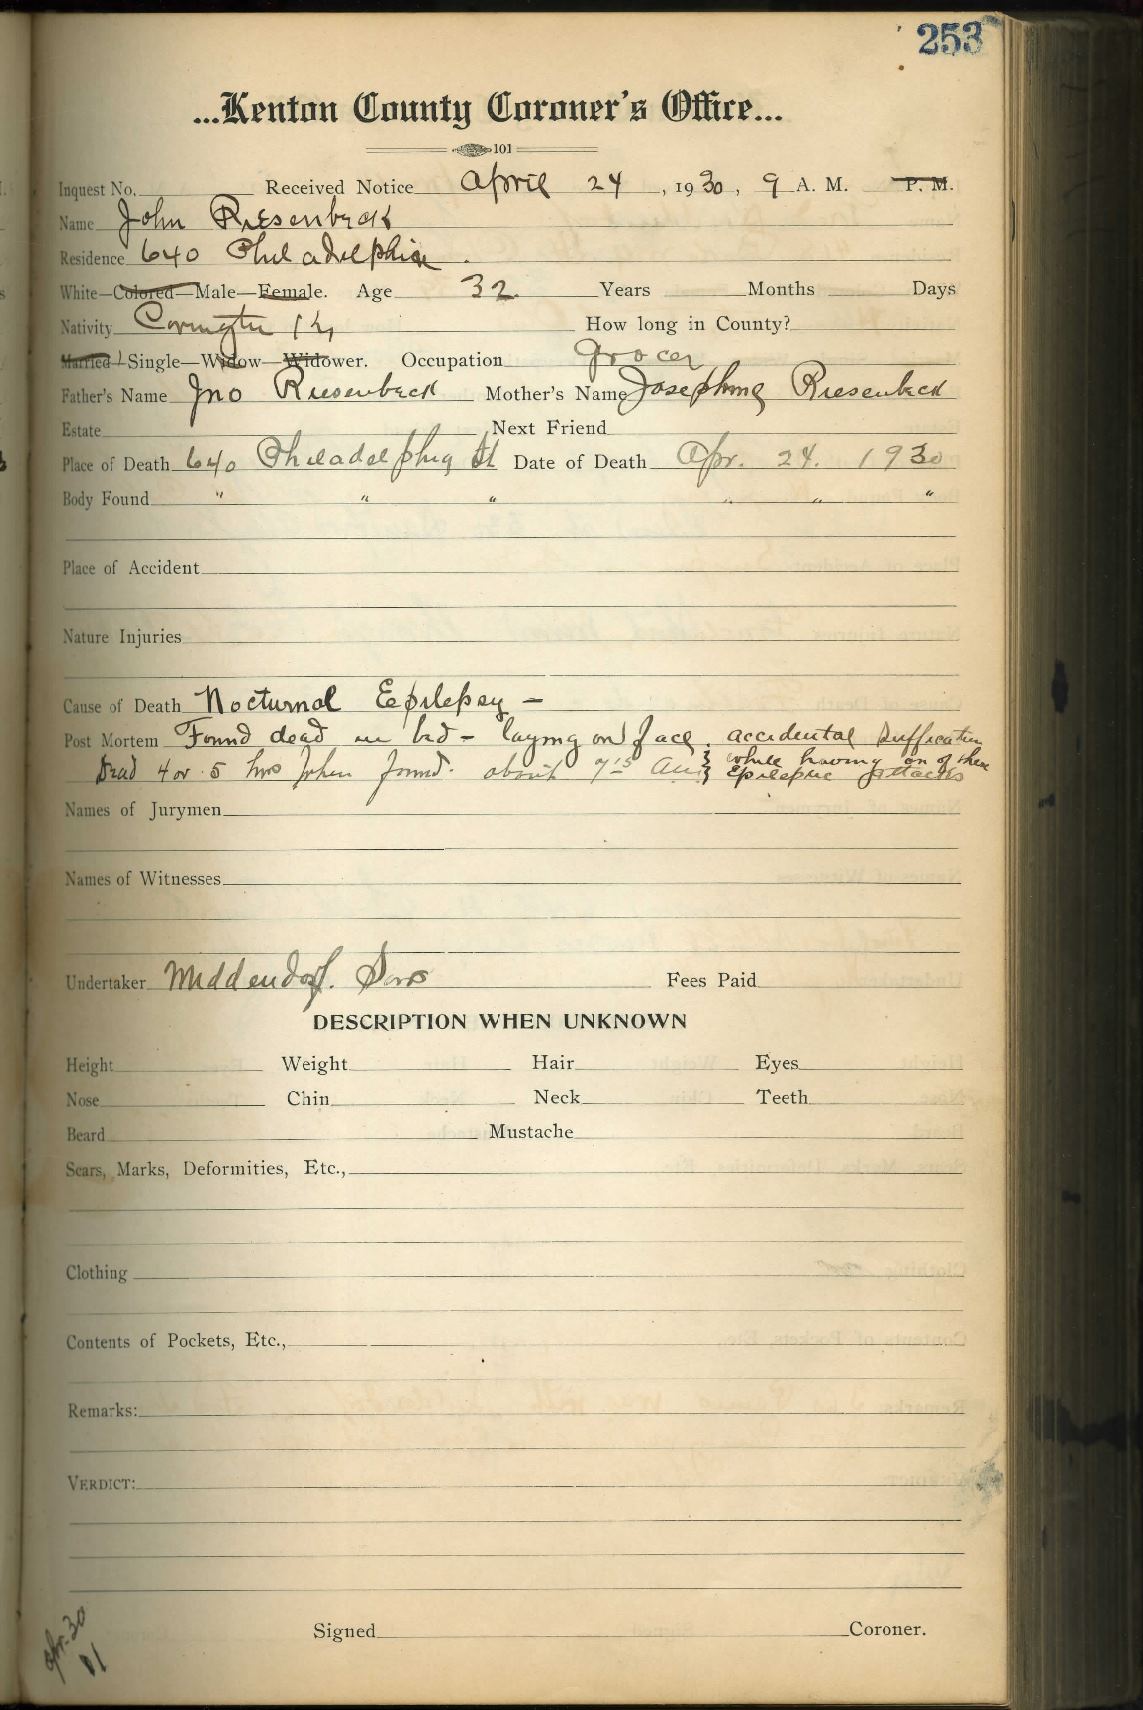 253
...Kenton County Coroner's Office...
101
Inquest No. Received Notice April 24, 1930, 9 A. M. P. M.
Name John Riesenbeck
Residence 640 Philadelphia.
White—Colored—Male—Female. Age 32 Years Months Days
Nativity Covington Ky How long in County?
Married—Single—Widow—Widower. Occupation Grocer
Father's Name Jno Riesenbeck Mother's Name Josephine Riesenbeck
Estate Next Friend
Place of Death 640 Philadelphia St Date of Death Apr. 24. 1930
Body Found " " " " " "
Place of Accident
Nature Injuries
Cause of Death Nocturnal Eepilepsy -
Post Mortem Found dead in bed - laying on face. accidental Suffication
Dead 4 or 5 hrs when found. about 7 15 AM } while having on of these
Epileptic attacks
Names of Jurymen
Names of Witnesses
Undertaker Middendorf. Sons Fees Paid
DESCRIPTION WHEN UNKNOWN
Height Weight Hair Eyes
Nose Chin Neck Teeth
Beard Mustache
Scars, Marks, Deformities, Etc.,
Clothing
Contents of Pockets, Etc.,
Remarks:
VERDICT:
Signed Coroner.
Apr. 30